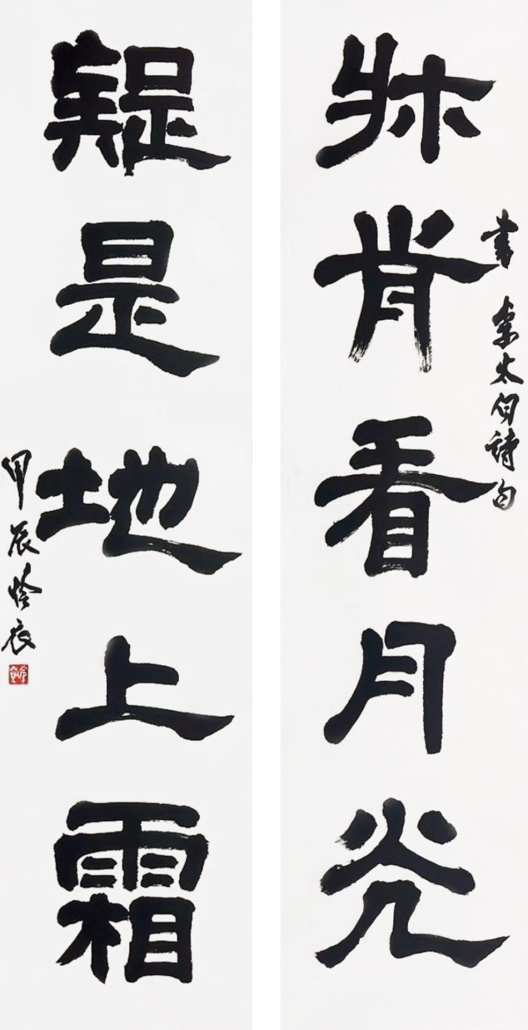 書李太白詩句
牀前看月光
疑是地上霜
甲辰